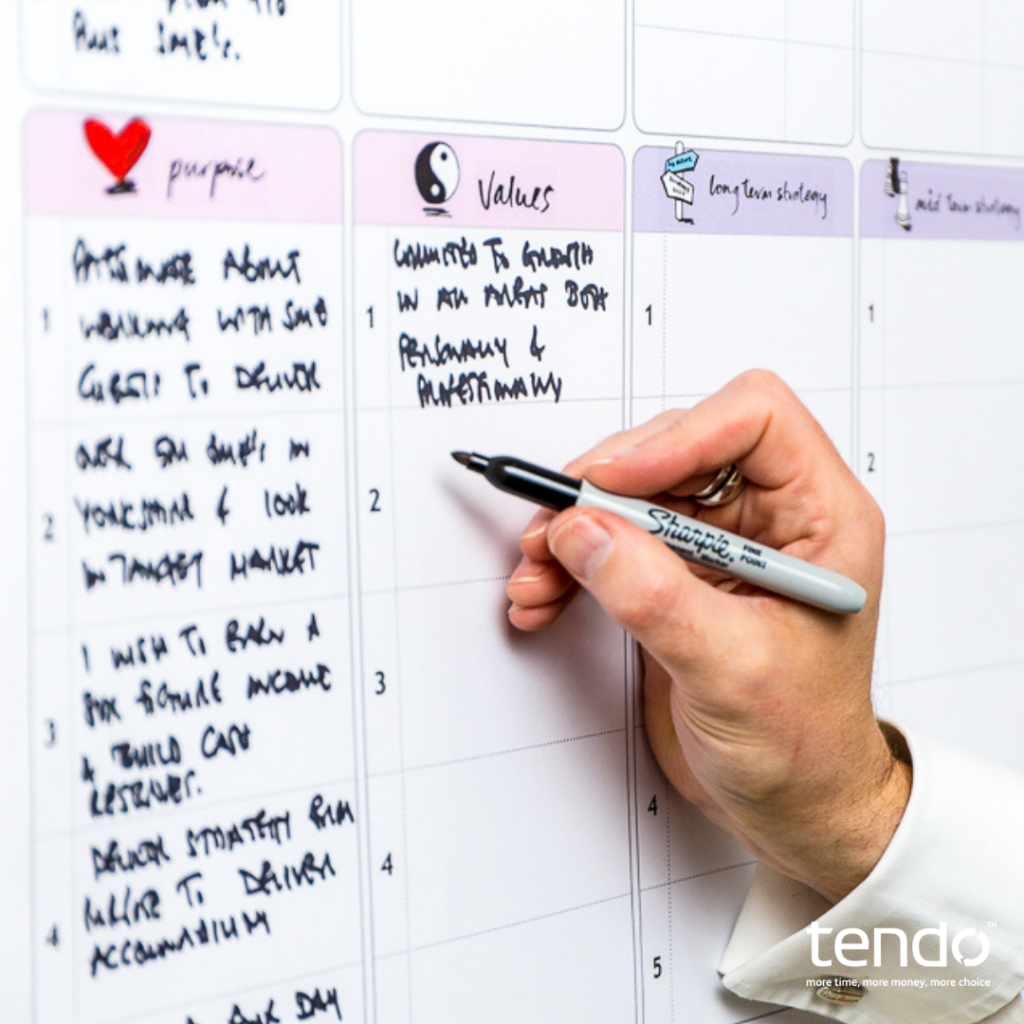 Plus SME's.
purpose
Values
long term strategy
mid term strategy
1
PASSIONATE ABOUT
WORKING WITH SME
CLIENTS TO DELIVER
2
OVER SME'S IN
YORKSHIRE & LOOK
IN TARGET MARKET
3
I WISH TO EARN A
SIX FIGURE INCOME
& BUILD CASH
RESERVES.
4
DELIVER STRATEGY
TO DELIVER
DAY
1
COMMITTED TO GROWTH
IN ALL AREAS BOTH
PERSONALLY &
PROFESSIONALLY
2
3
4
1
4
5
1
2
Sharpie.
FINE
POINT
Marker
tendo™
more time, more money, more choice